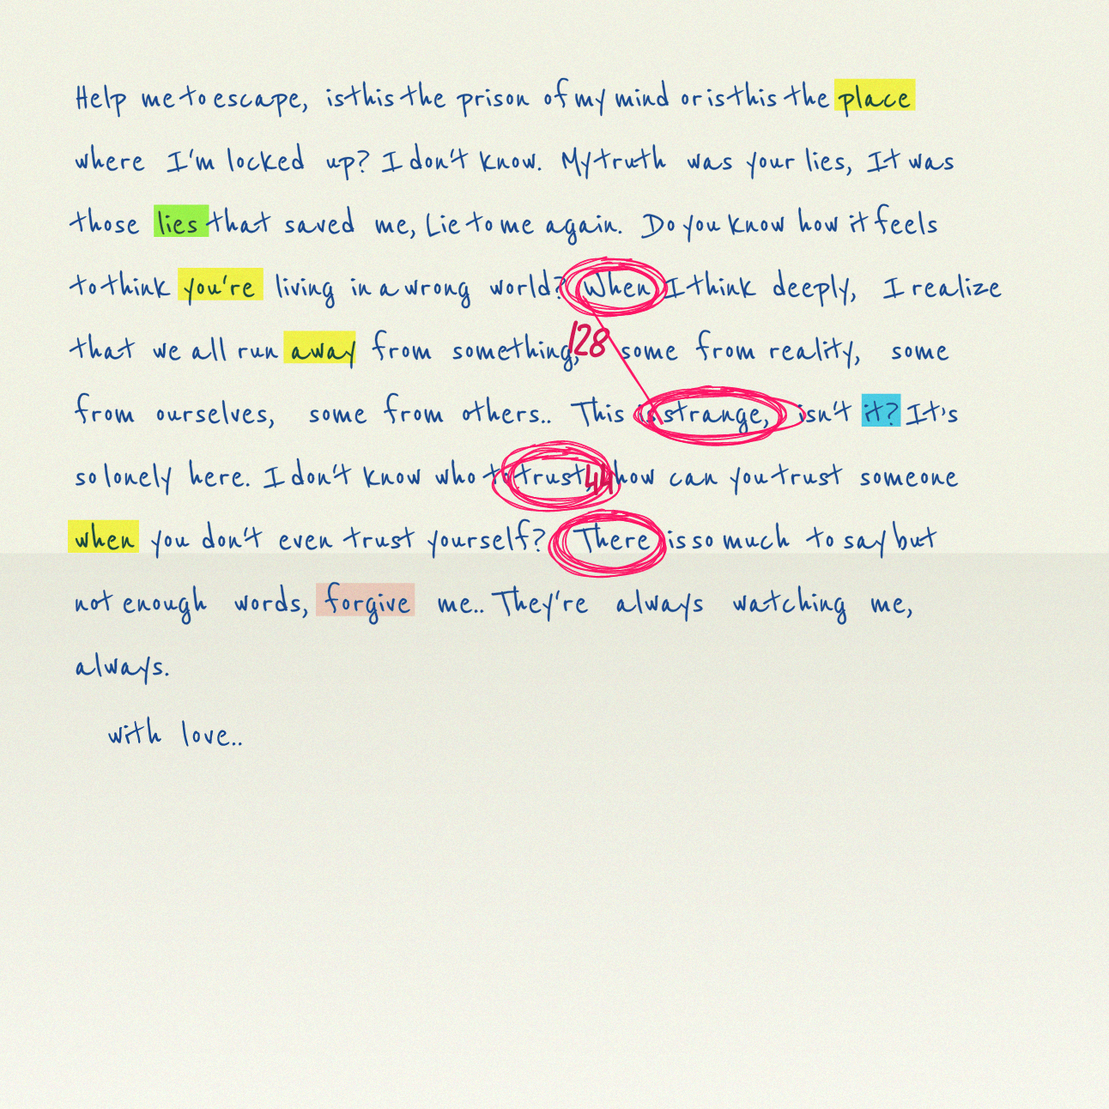 Help me to escape, is this the prison of my mind or is this the place
where I'm locked up? I don't know. My truth was your lies, It was
those lies that saved me, Lie to me again. Do you know how it feels
to think you're living in a wrong world? When I think deeply, I realize
that we all run away from something, 128 some from reality, some
from ourselves, some from others.. This is strange, isn't it? It's
so lonely here. I don't know who to trust, 44 how can you trust someone
when you don't even trust yourself? There is so much to say but
not enough words, forgive me.. They're always watching me,
always.
with love..